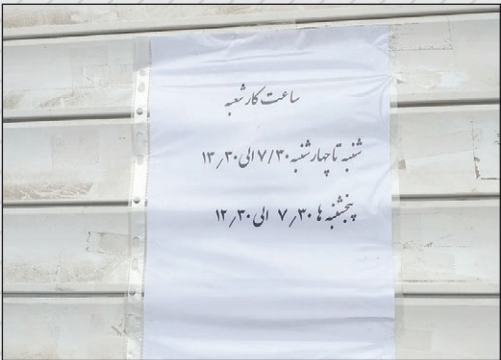 ساعت کار شعبه
شنبه تا چهارشنبه ۷/۳۰ الی ۱۳٫۳۰
پنجشنبه ها ۷٫۳۰ الی ۱۲٫۳۰